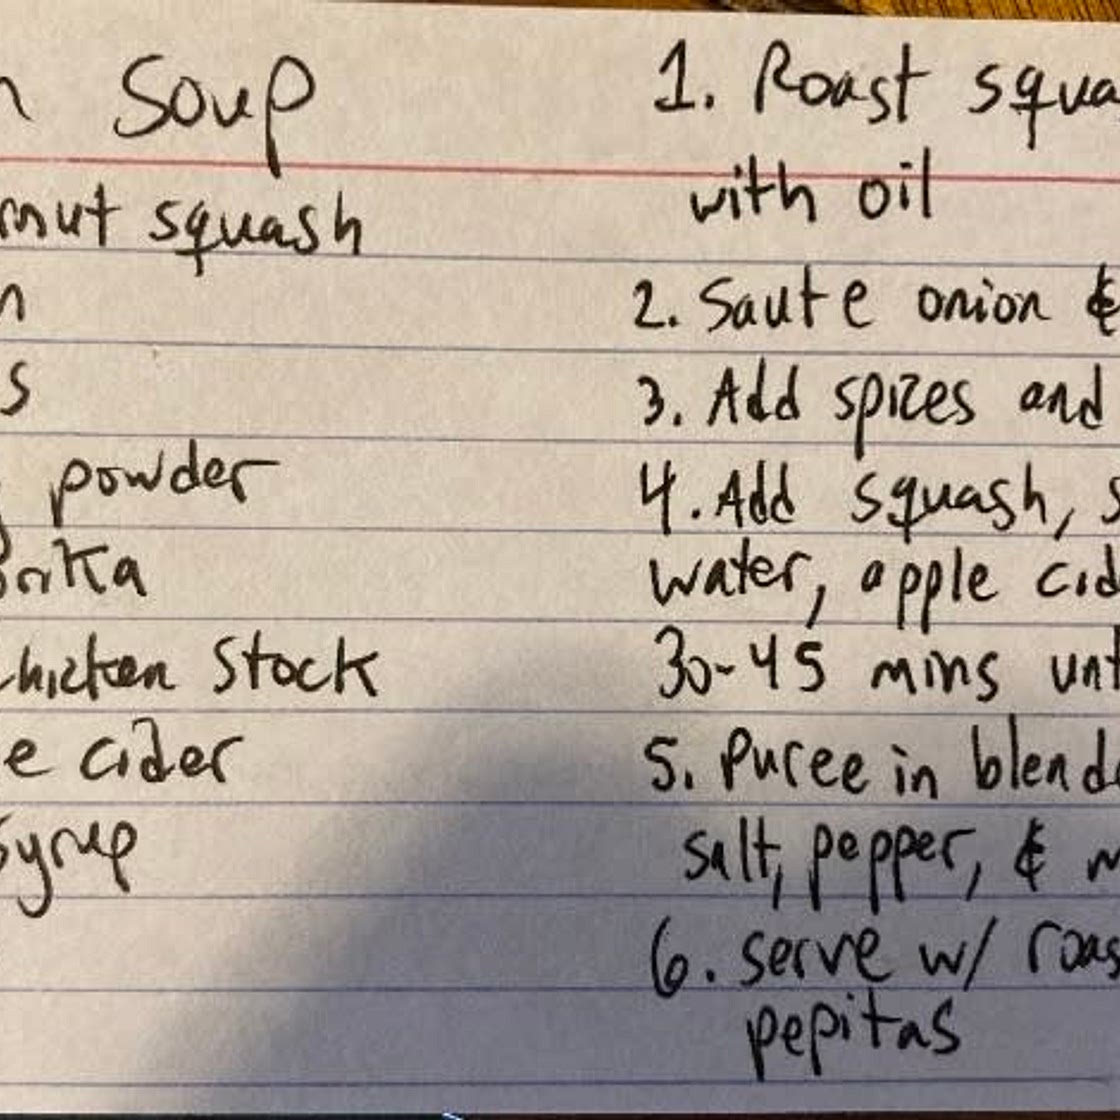 Soup
rnut squash
n
s
powder
rika
chicken Stock
e cider
Syrup
1. Roast squa
with oil
2. Saute onion &
3. Add spices and
4. Add squash, s
water, apple cid
30-45 mins unt
5. Puree in blende
salt, pepper, & m
6. serve w/ roas
pepitas